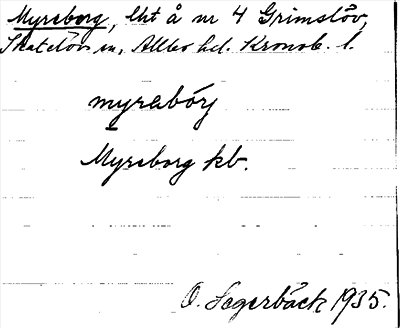 Myraborg, lht å nr 4 Grimslöv,
Skatelövs sn, Allbo hd. Kronob. l.
myrabórj
Myraborg kb.
O. Segerbäck 1935.